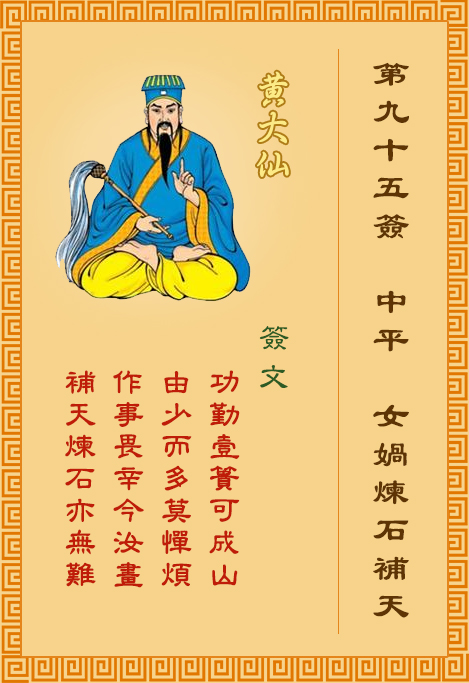 第九十五簽 中平 女媧煉石補天
黄大仙
簽文
功勤壹簣可成山
由少而多莫憚煩
作事畏辛今汝畫
補天煉石亦無難